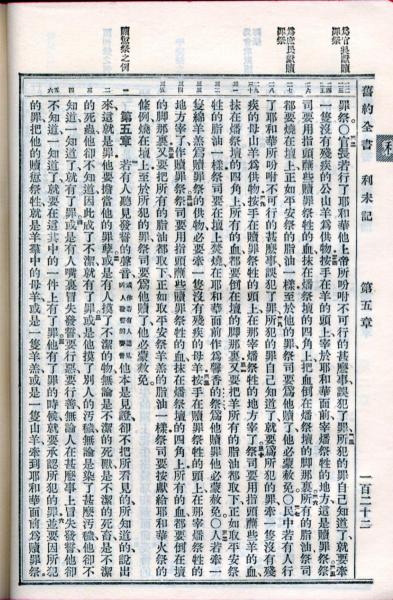 舊約全書 利未記 第五章 一百二十二
為官長獻贖罪祭
罪祭〇官長若行了耶和華他上帝所吩咐不可行的甚麼事誤犯了罪所犯的罪自己知道了就要牽
一隻沒有殘疾的公山羊為供物按手在羊的頭上宰於耶和華面前宰燔祭牲的地方這是贖罪祭祭
司要用指頭蘸些贖罪祭牲的血抹在燔祭壇的四角上把血倒在燔祭壇的脚那裏所有的脂油祭司
都要燒在壇上正如平安祭的脂油一樣至於他的罪祭司要為他贖了他必蒙赦免〇民中若有人行
為庶民獻贖罪祭
了耶和華所吩咐不可行的甚麼事誤犯了罪所犯的罪自己知道了就要為所犯的罪牽一隻沒有殘
疾的母山羊為供物按手在贖罪祭牲的頭上在那宰燔祭牲的地方宰了祭司要用指頭蘸些羊的血
抹在燔祭壇的四角上所有的血都要倒在壇的脚那裏又要把羊所有的脂油都取下正如取平安祭
牲的脂油一樣祭司要在壇上焚燒在耶和華面前作為馨香的祭為他贖罪他必蒙赦免〇人若牽一
隻綿羊羔為贖罪祭的供物必要牽一隻沒有殘疾的母羊按手在贖罪祭牲的頭上在那宰燔祭牲的
地方宰了作贖罪祭祭司要用指頭蘸些贖罪祭牲的血抹在燔祭壇的四角上所有的血都要倒在壇
的脚那裏又要把所有的脂油都取下正如取平安祭羊羔的脂油一樣祭司要按獻給耶和華火祭的
條例燒在壇上至於所犯的罪祭司要為他贖了他必蒙赦免
贖愆祭之例
第五章 若有人聽見發誓的聲音他本是見證却不把所看見的所知道的說出
來這就是罪他要擔當他的罪孽或是有人摸了不潔的物無論是不潔的死獸是不潔的死畜是不潔
的死蟲他却不知道因此成了不潔就有了罪或是他摸了別人的污穢無論是染了甚麼污穢他却不
知道一知道了就有了罪或是有人嘴裏冒失發誓要行惡要行善無論人在甚麼事上冒失發誓他却
不知道一知道了就要在這其中的一件上有了罪他有了罪的時候就要承認所犯的罪並要因所犯
的罪把他的贖愆祭牲就是羊羣中的母羊或是一隻羊羔或是一隻山羊牽到耶和華面前為贖罪祭